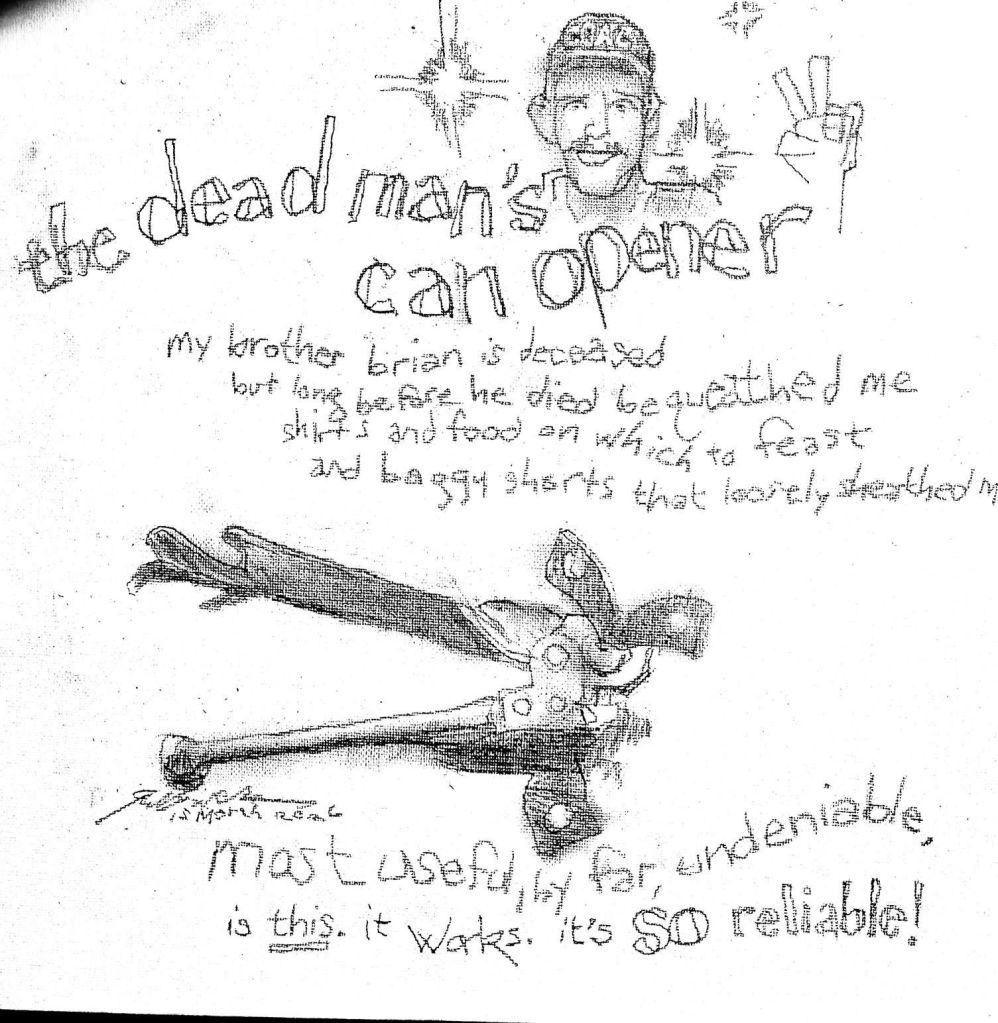 the dead man's
can opener
my brother brian is deceased
but long before he died bequeathed me
shirts and food on which to feast
and baggy shorts that loosely sheathed m
15 March 2026
most useful, by far, undeniable,
is this. it works. it's so reliable!